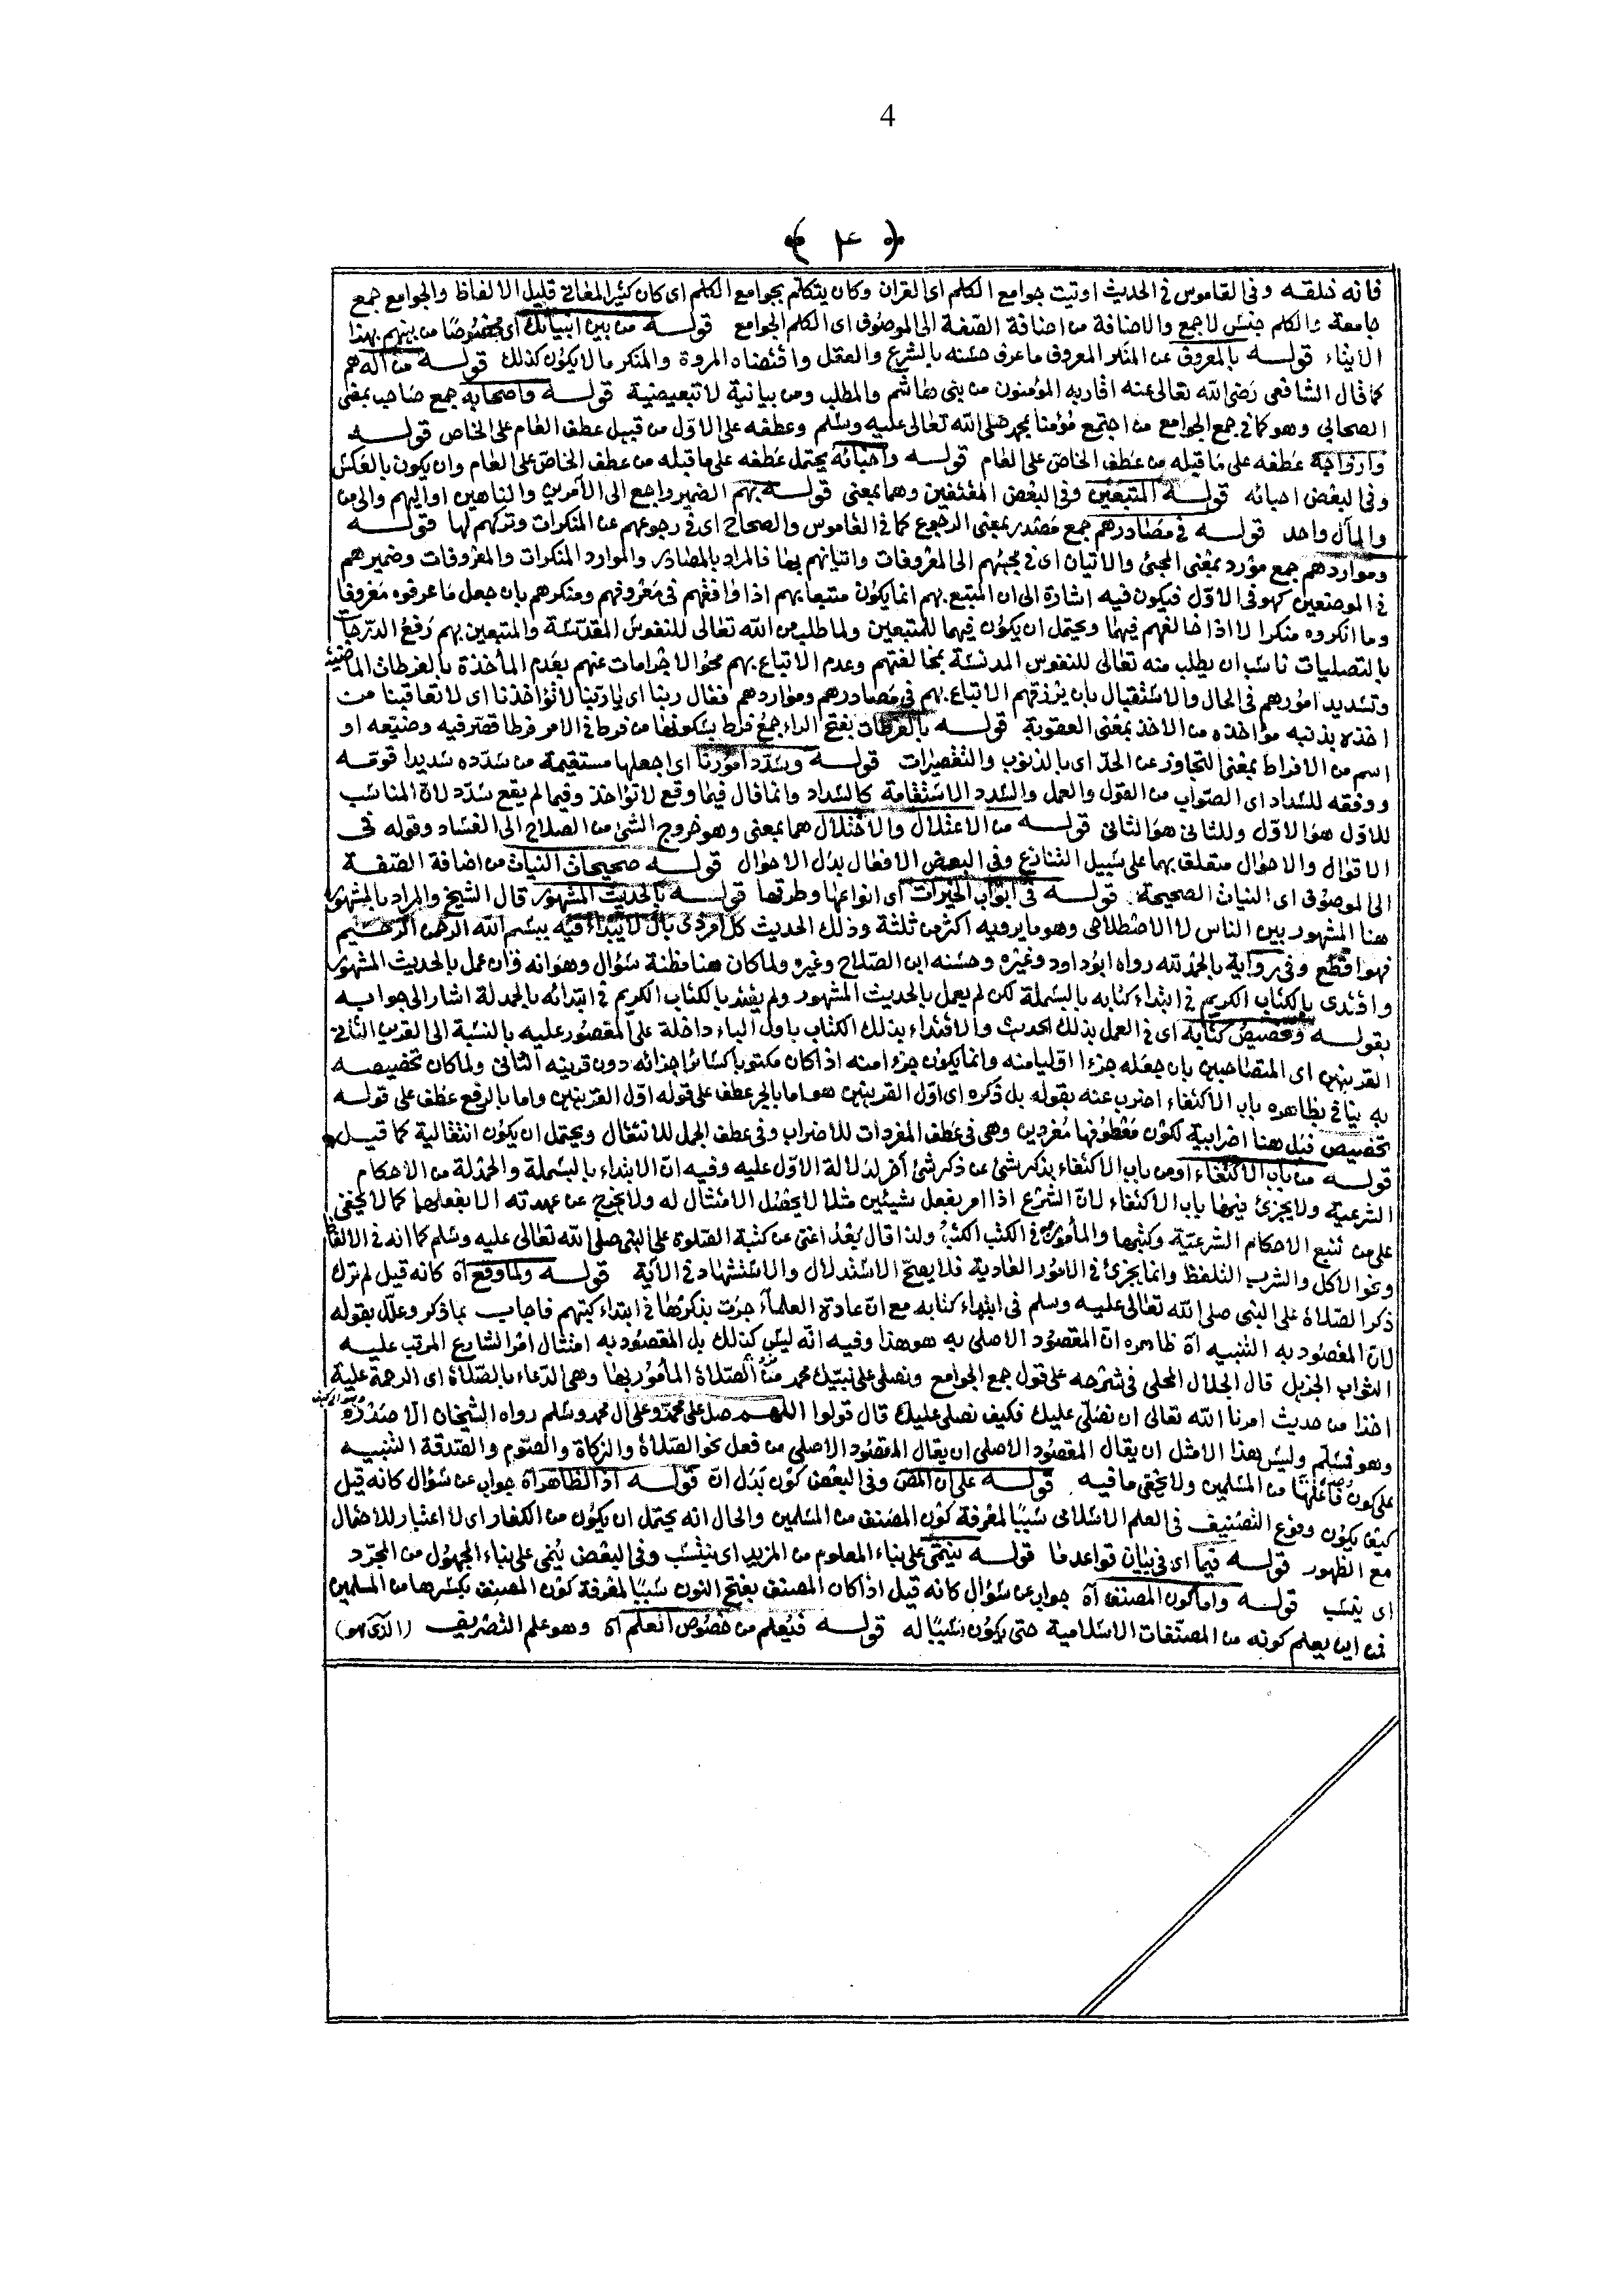 4
﴿ ٤ ﴾
فانه خلقه وفى القاموس فى الحديث اوتيت جوامع الكلم اى القران وكان يتكلم بجوامع الكلم اى كان كثير المعانى قليل الالفاظ والجوامع جمع
جامعة والكلم جنس لا جمع والاضافة من اضافة الصفة الى الموصوف اى الكلم الجوامع قولـــه من بين انبيائك اى مخصوصا من بينهم بهذا
الايتاء قولـــه بالمعروف عن المنكر المعروف ما عرف حسنه بالشرع والعقل واقتضاه المروة والمنكر ما لا يكون كذلك قولـــه من آله هم
كما قال الشافعى رضى الله تعالى عنه اقاربه المؤمنون من بنى هاشم والمطلب ومن بيانية لا تبعيضية قولـــه واصحابه جمع صاحب بمعنى
الصحابى وهو كما فى جمع الجوامع من اجتمع مؤمنا بمحمد صلى الله تعالى عليه وسلم وعطفه على الاول من قبيل عطف العام على الخاص قولـــه
وازواجه عطفه على ما قبله من عطف الخاص على العام قولـــه واحبائه يحتمل عطفه على ما قبله من عطف الخاص على العام وان يكون بالعكس
وفى البعض احبائه قولـــه المتبعين وفى البعض المقتفين وهما بمعنى قولـــه بهم الضمير راجع الى الآمرين والناهين او اليهم والى من
والمآل واحد قولـــه فى مصادرهم جمع مصدر بمعنى الرجوع كما فى القاموس والصحاح اى فى رجوعهم عن المنكرات وتركهم لها قولـــه
ومواردهم جمع مورد بمعنى المجئ والاتيان اى فى مجيئهم الى المعروفات واتيانهم بها فالمراد بالمصادر والموارد المنكرات والمعروفات وضميرهم
فى الموضعين كهو فى الاول فيكون فيه اشارة الى ان المتبع بهم انما يكون متبعا بهم اذا وافقهم فى معروفهم ومنكرهم بان جعل ما عرفوه معروفا
وما انكروه منكرا لا اذا خالفهم فيهما ويحتمل ان يكون فيهما للمتبعين ولما طلب من الله تعالى للنفوس المقدسة والمتبعين بهم رفع الدرجات
بالتصليات ناسب ان يطلب منه تعالى للنفوس المدنسة بمخالفتهم وعدم الاتباع بهم محو الاجرامات عنهم بعدم المأخذة بالفرطات الماضية
وتسديد امورهم فى الحال والاستقبال بان يرزقهم الاتباع بهم فى مصادرهم ومواردهم فقال ربنا اى يا ربنا لا تؤاخذنا اى لا تعاقبنا من
اخذه بذنبه مؤاخذه من الاخذ بمعنى العقوبة قولـــه بالفرطات بفتح الراء جمع فرط بسكونها من فرط فى الامر فرطا قصر فيه وضيعه او
اسم من الافراط بمعنى التجاوز عن الحد اى بالذنوب والتقصيرات قولـــه وسدد امورنا اى اجعلها مستقيمة من سدده سديدا قومه
ووفقه للسداد اى الصواب من القول والعمل والسدد الاستقامة كالسداد وانما قال فيما وقع لا تؤاخذ وفيما لم يقع سدد لان المناسب
للاول هو الاول وللثانى هو الثانى قولـــه من الاعتلال والاختلال هما بمعنى وهو خروج الشئ من الصلاح الى الفساد وقوله فى
الاقوال والاحوال متعلق بهما على سبيل التنازع وفى البعض الافعال بدل الاحوال قولـــه صحيحات النيات من اضافة الصفة
الى الموصوف اى النيات الصحيحة قولـــه فى ابواب الخيرات اى انواعها وطرقها قولـــه بالحديث المشهور قال الشيخ والمراد بالمشهور
هنا المشهور بين الناس لا الاصطلاحى وهو ما يرويه اكثر من ثلثة وذلك الحديث كل امر ذى بال لا يبتداء فيه ببسم الله الرحمن الرحيم
فهو اقطع وفى رواية بالحمد لله رواه ابو داود وغيره وحسنه ابن الصلاح وغيره ولما كان هنا مظنة سؤال وهو انه وان عمل بالحديث المشهور
واقتدى بالكتاب الكريم فى ابتداء كتابه بالبسملة لكن لم يعمل بالحديث المشهور ولم يقتد بالكتاب الكريم فى ابتدائه بالحمدلة اشار الى جوابه
بقولـــه وتخصيص كتابه اى فى العمل بذلك الحديث والاقتداء بذلك الكتاب باول الباء داخلة على المقصور عليه بالنسبة الى القرين الثانى
القرينين اى المتصاحبين بان جعله جزءا اوليا منه وانما يكون جزءا منه اذا كان مكتوبا كسائر اجزائه دون قرينه الثانى ولما كان تخصيصه
به ينافى بظاهره باب الاكتفاء اضرب عنه بقوله بل ذكره اى اول القرينين هو اما بالجر عطف على قوله اول القرينين واما بالرفع عطف على قوله
تخصيص فبل هنا اضرابية لكون معطوفها مفردين وهى فى عطف المفردات للاضراب وفى عطف الجمل للانتقال ويحتمل ان يكون انتقالية كما قيل
قولـــه من باب الاكتفاء او من باب الاكتفاء بذكر شئ عن ذكر شئ آخر لدلالة الاول عليه وفيه ان الابتداء بالبسملة والحمدلة من الاحكام
الشرعية ولا يجزئ فيها باب الاكتفاء لان الشرع اذا امر بفعل شيئين مثلا لا يحصل الامتثال له ولا يخرج عن عهدته الا بفعلهما كما لا يخفى
على من تتبع الاحكام الشرعية وكتبها والمأمور فى الكتب الكتب ولذا قال بعد اعنى عن كتبة الصلوة على النبى صلى الله تعالى عليه وسلم كما انه فى الالفاظ
ونحو الاكل والشرب التلفظ وانما يجزئ فى الامور العادية فلا يصح الاستدلال والاستشهاد فى الآية قولـــه ولما وقع آه كانه قيل لم ترك
ذكر الصلاة على النبى صلى الله تعالى عليه وسلم فى ابتداء كتابه مع ان عادة العلماء جرت بذكرها فى ابتداء كتبهم فاجاب بما ذكر وعلل بقوله
لان المقصود به التنبيه آه ظاهره ان المقصود الاصلى به هو هذا وفيه انه ليس كذلك بل المقصود به امتثال امر الشارع المرتب عليه
الثواب الجزيل قال الجلال المحلى فى شرحه على قول جمع الجوامع ونصلى على نبيك محمد من الصلاة المأمور بها وهى الدعاء بالصلاة اى الرحمة عليه
اخذا من حديث امرنا الله تعالى ان نصلى عليك فكيف نصلى عليك قال قولوا اللهم صل على محمد وعلى آل محمد وسلم رواه الشيخان الا صدره
وهو فمسلم وليس بهذا الامثل ان يقال المقصود الاصلى ان يقال المقصود الاصلى من فعل نحو الصلاة والزكاة والصوم والصدقة التنبيه
على كون فاعلها من المسلمين ولا يخفى ما فيه قولـــه على ان المص وفى البعض كون بدل ان قولـــه اذ الظاهر آه جواب عن سؤال كانه قيل
كيف يكون وقوع التصنيف فى العلم الاسلامى سببا لمعرفة كون المصنف من المسلمين والحال انه يحتمل ان يكون من الكفار اى لا اعتبار للاحتمال
مع الظهور قولـــه فيما اى فى بيان قواعد ما قولـــه ينتمى على بناء المعلوم من المزيد اى ينتسب وفى البعض ينمى على بناء المجهول من المجرد
اى ينسب قولـــه واما كون المصنف آه جواب عن سؤال كانه قيل اذا كان المصنف بفتح النون سببا لمعرفة كون المصنف بكسرها من المسلمين
فمن اين يعلم كونه من المصنفات الاسلامية حتى يكون سببا له قولـــه فيعلم من خصوص العلم آه وهو علم التصريف (الذى هو)